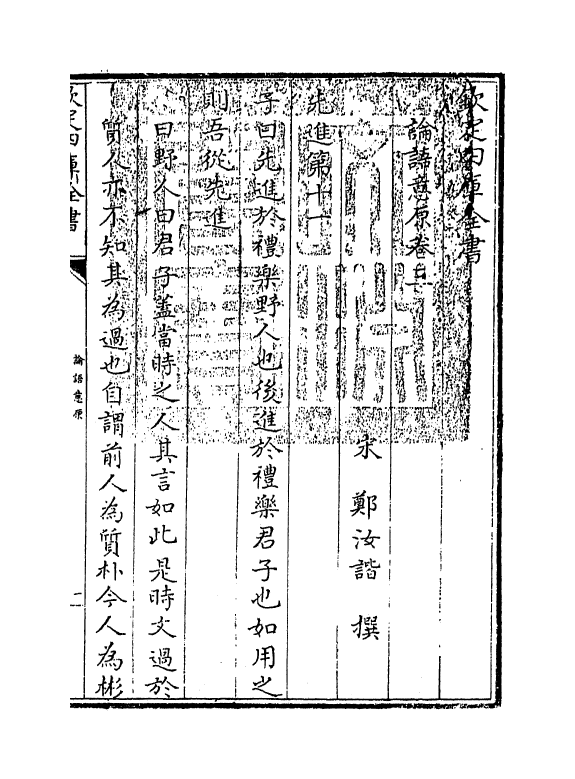 欽定四庫全書
論語意原卷三
宋 鄭汝諧 撰
先進第十一
子曰先進於禮樂野人也後進於禮樂君子也如用之
則吾從先進
曰野人曰君子蓋當時之人其言如此是時文過於
質人亦不知其為過也自謂前人為質朴今人為彬
欽定四庫全書
論語意原